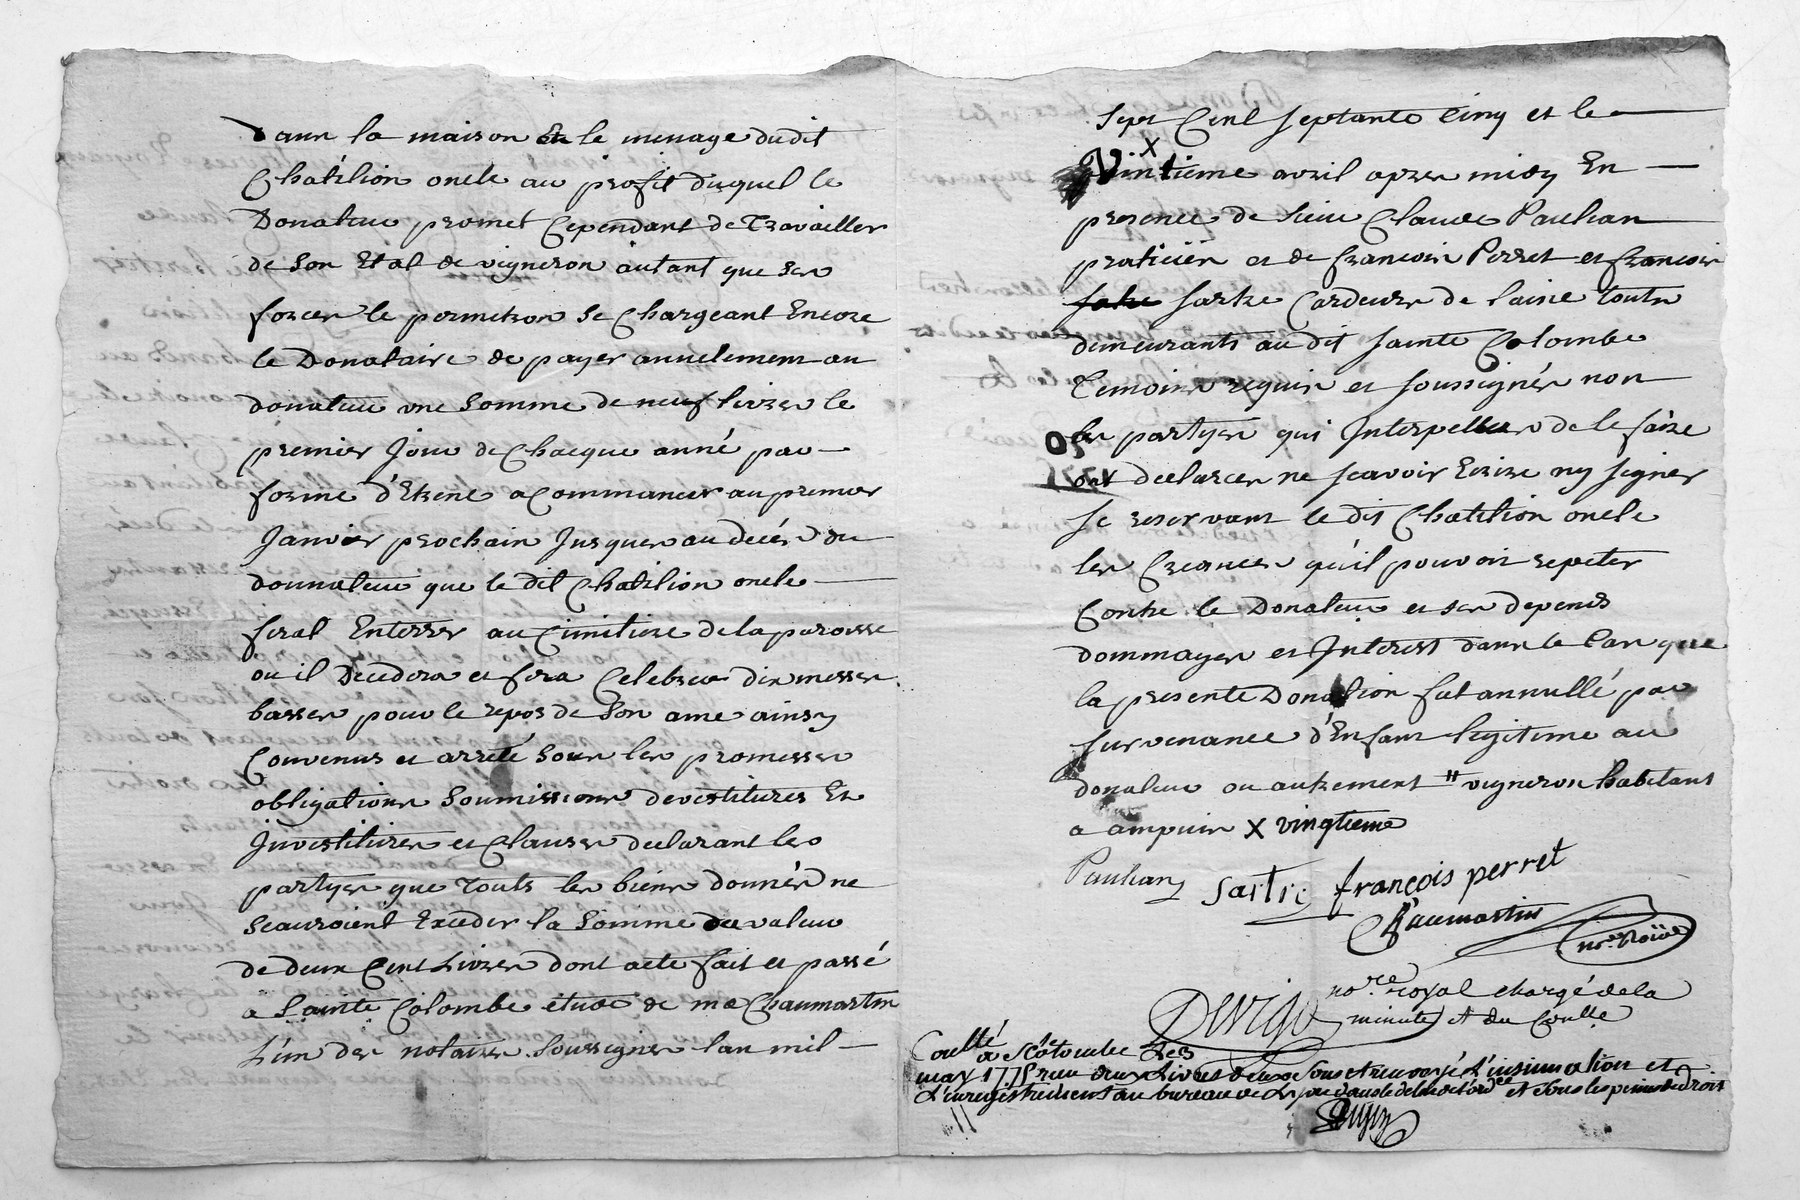 dans la maison et le menage dudit
Chatilion oncle au profit duquel le
Donateur promet Cependant de Travailler
de Son Etat de vigneron autant que ses
forces le permetron Se Chargeant Encore
le Donataire de payer annuelement au
donateur une Somme de neuf livres le
premier Jour de Chacque anné par
forme d'Etrene a Commancer au premier
Janvier prochain Jusques au decés du
donnateur que le dit Chatilion oncle
ferat Enterrer au Cimitiere de la paroisse
ou il Decedera et fera Celebrer dix messes
basses pour le repos de Son ame ainsy
Convenus et arreté Sous les promesses
obligations Soumissions devestitures Et
Investitures et Clauses declarant les
partyes que Touts les biens donnés ne
scauroient Exceder la Somme ou valeur
de deux Cent Livres dont acte fait et passé
a Sainte Colombe étude de me Chaumartin
L'un des notaires Soussignes lan mil
Sept Cent Septante Cinq et le
X
Vintieme avril apres midy En
presence de Sieur Claude Paulian
praticien et de francois Perret et francois
Sartre Cardeurs de laine touts
demeurants au dit Sainte Colombe
Temoins requis et soussignés non
les partyes qui Interpellees de le faire
ont declarees ne scavoir Ecrire ny Signer
Se reservant le dit Chatilion oncle
les Creances qu'il pouvoit repeter
Contre le Donateur et ses depends
dommages et Interest dans le Cas que
la presente Donation fut annullé par
survenance d'Enfant legitime au
donateur ou autrement " vigneron habitant
a ampuis X vingtieme
Paulian Sartre françois perret
Chaumartin
nore. Roial
Devigo nore royal chargé de la
minute et du Coulle
Coullé a Ste Colombe Le 3
may 1775 receu deux Livres deux Sous et renvoyé L'insinuation et
L'enregistrement au bureau de et sous les peines de Droit